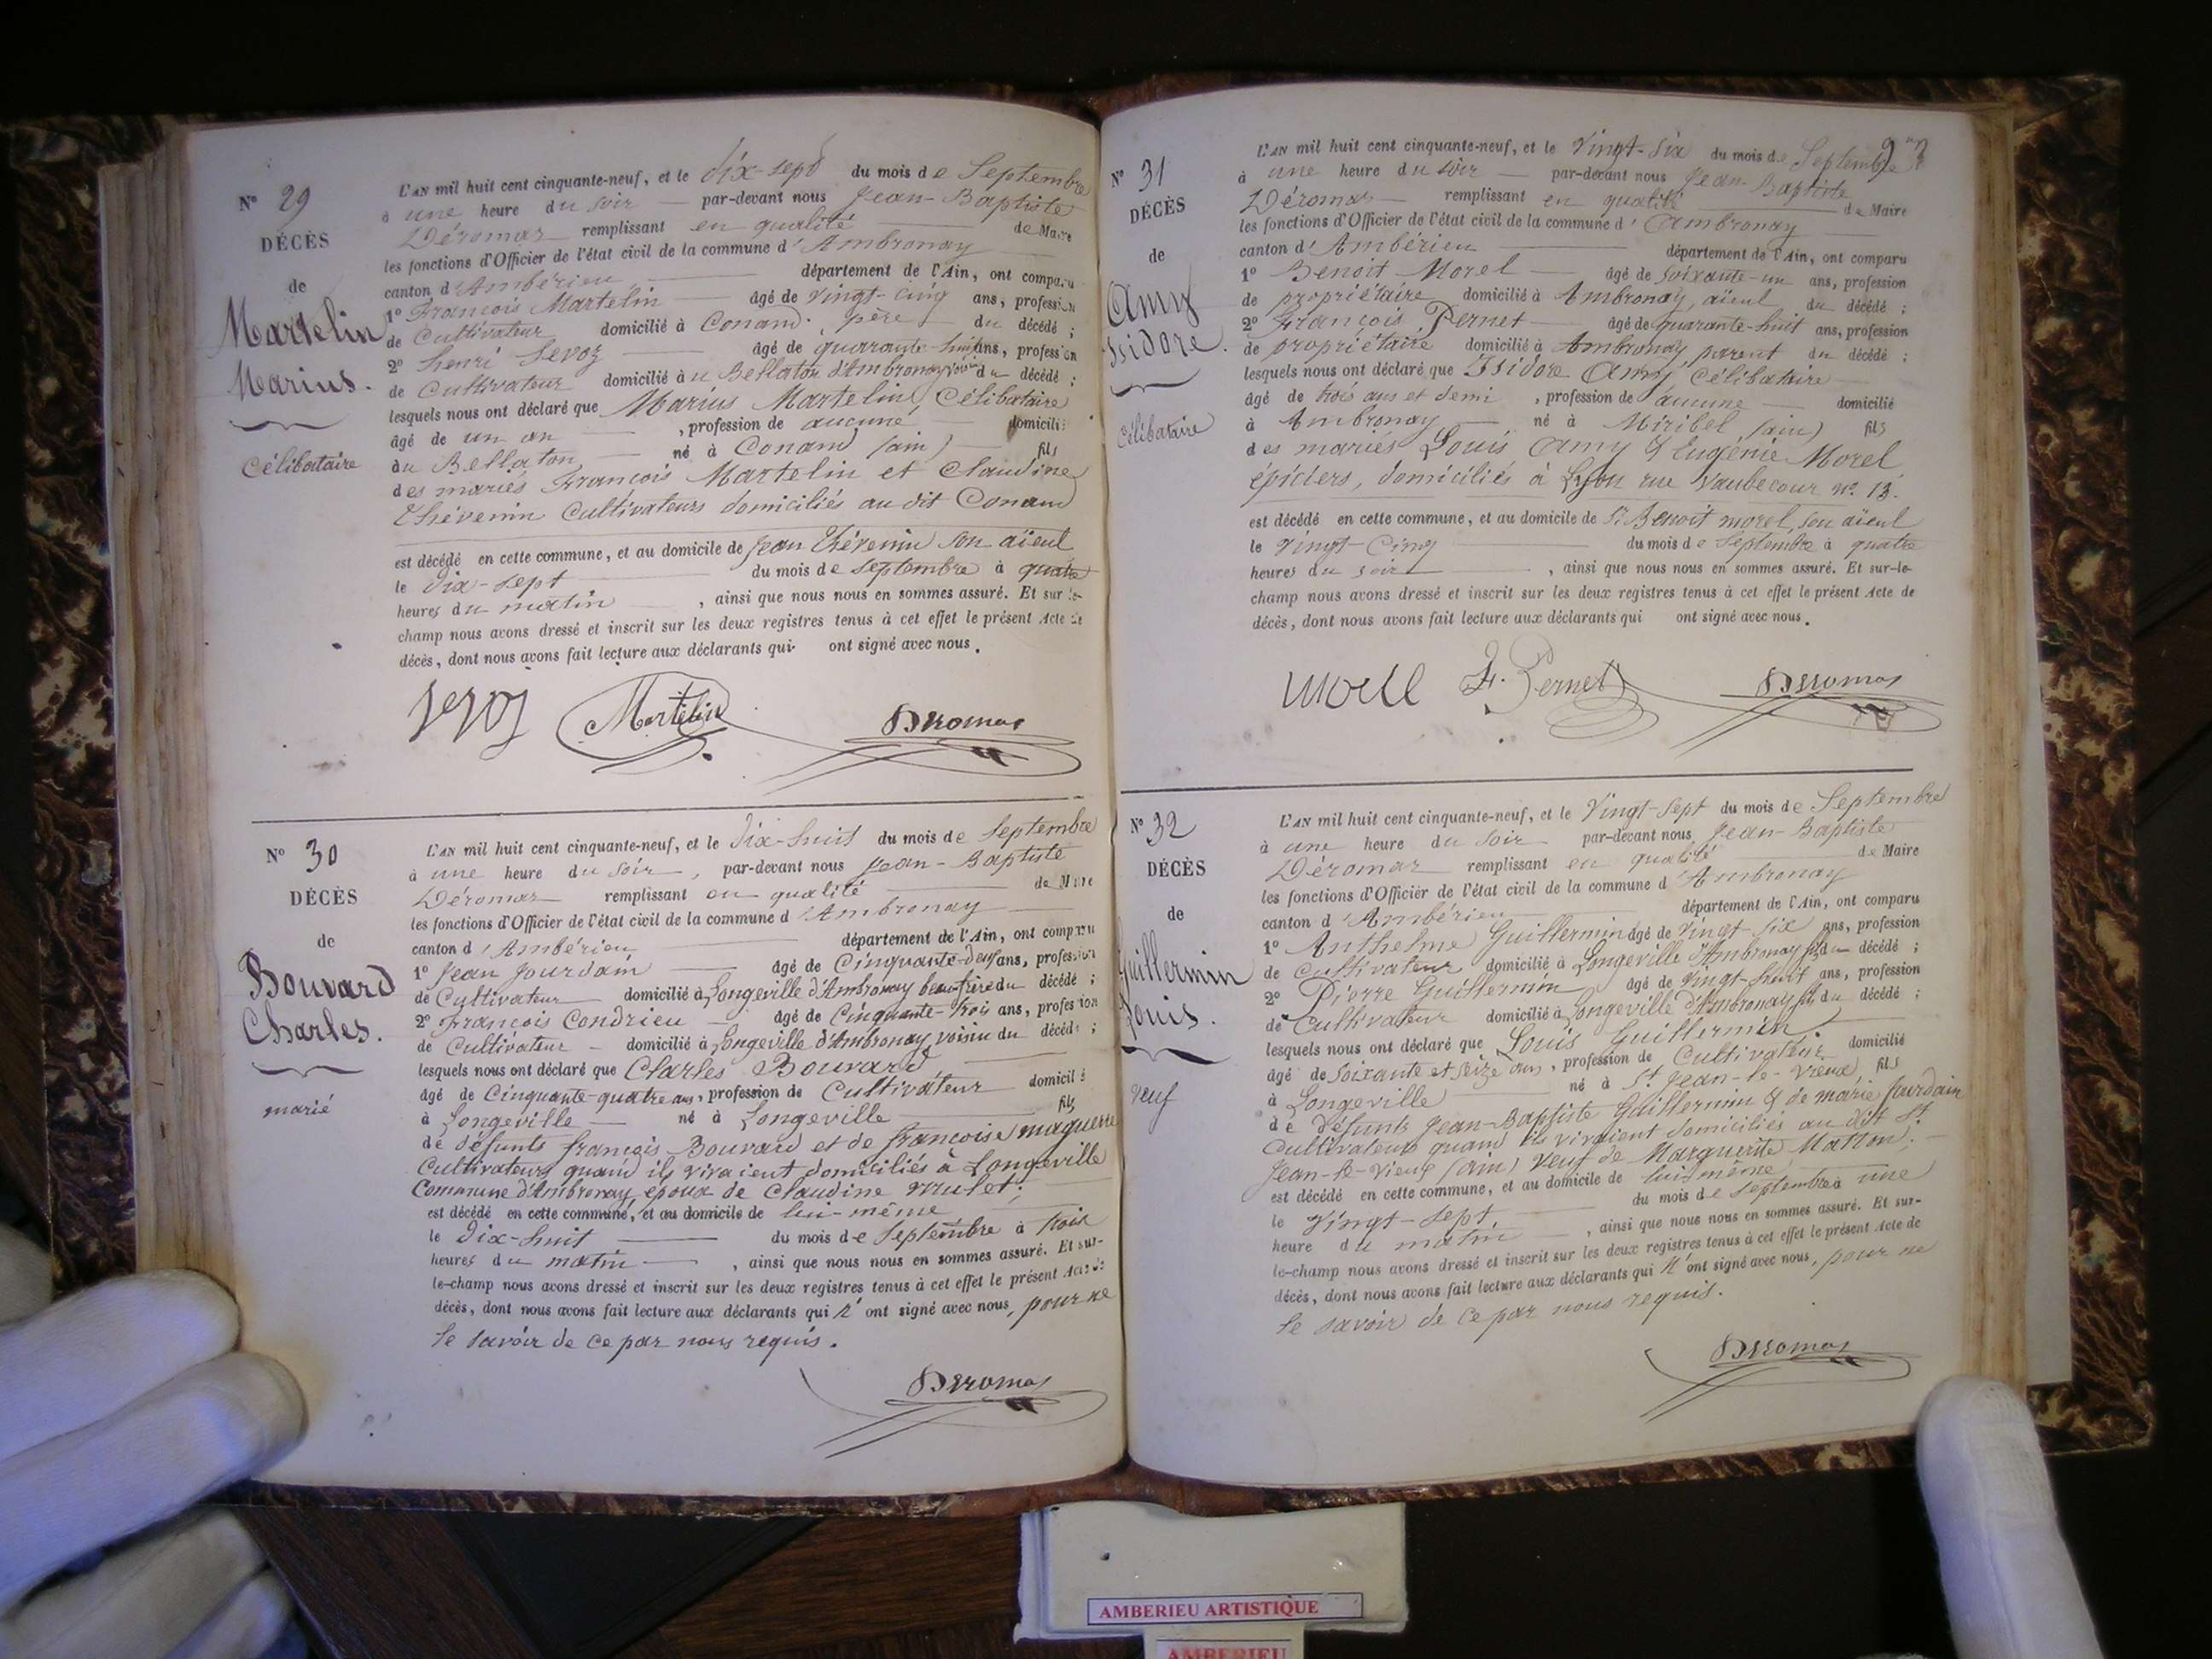 N° 29
DÉCÈS
de
Martelin
Marius.
Célibataire
L'AN mil huit cent cinquante-neuf, et le dix-sept du mois de Septembre
à une heure du soir par-devant nous Jean-Baptiste
Déromas remplissant en qualité de Maire
les fonctions d'Officier de l'état civil de la commune d'Ambronay
canton d'Ambérieu département de l'Ain, ont comparu
1° François Martelin âgé de vingt-cinq ans, profession
de Cultivateur domicilié à Conand, père du décédé ;
2° henri Sevoz âgé de quarante-huit ans, profession
de Cultivateur domicilié à u Bellaton d'Ambronay, voisin du décédé ;
lesquels nous ont déclaré que Marius Martelin, Célibataire
âgé de un an , profession de aucune domicilié
au Bellaton né à Conand (ain) fils
des mariés François Martelin et Claudine
Thévenin Cultivateurs domiciliés au dit Conand
est décédé en cette commune, et au domicile de Jean Thévenin son aïeul
le dix-sept du mois de septembre à quatre
heures du matin , ainsi que nous nous en sommes assuré. Et sur-le-
champ nous avons dressé et inscrit sur les deux registres tenus à cet effet le présent Acte de
décès, dont nous avons fait lecture aux déclarants qui ont signé avec nous.
Sevoz Martelin Deromas
N° 30
DÉCÈS
de
Bouvard
Charles.
marié
L'AN mil huit cent cinquante-neuf, et le dix-huit du mois de Septembre
à une heure du soir, par-devant nous Jean-Baptiste
Déromas remplissant en qualité de Maire
les fonctions d'Officier de l'état civil de la commune d'Ambronay
canton d'Ambérieu département de l'Ain, ont comparu
1° Jean Jourdain âgé de Cinquante-deux ans, profession
de Cultivateur domicilié à Longeville d'Ambronay beau-frère du décédé ;
2° François Condrieu âgé de Cinquante-trois ans, profession
de Cultivateur domicilié à Longeville d'Ambronay, voisin du décédé ;
lesquels nous ont déclaré que Charles Bouvard
âgé de Cinquante-quatre ans, profession de Cultivateur domicilié
à Longeville né à Longeville fils
de défunts françois Bouvard et de françoise maguette
Cultivateurs quand ils vivaient domiciliés à Longeville
Commune d'Ambronay, époux de Claudine Mulet ;
est décédé en cette commune, et au domicile de lui-même
le dix-huit du mois de Septembre à trois
heures du matin , ainsi que nous nous en sommes assuré. Et sur-
le-champ nous avons dressé et inscrit sur les deux registres tenus à cet effet le présent Acte de
décès, dont nous avons fait lecture aux déclarants qui n'ont signé avec nous, pour ne
le savoir de ce par nous requis.
Deromas
N° 31
DÉCÈS
de
Amy
Isidore.
Célibataire
L'AN mil huit cent cinquante-neuf, et le Vingt-six du mois de Septembre
à une heure du soir par-devant nous Jean-Baptiste
Déromas remplissant en qualité de Maire
les fonctions d'Officier de l'état civil de la commune d'Ambronay
canton d'Ambérieu département de l'Ain, ont comparu
1° Benoit Morel âgé de soixante-un ans, profession
de propriétaire domicilié à Ambronay, aïeul du décédé ;
2° François Pernet âgé de quarante-huit ans, profession
de propriétaire domicilié à Ambronay, parent du décédé ;
lesquels nous ont déclaré que Isidore Amy Célibataire
âgé de trois ans et demi , profession de aucune domicilié
à Ambronay né à Miribel (ain) fils
des mariés Louis Amy & Eugénie Morel
épiciers, domiciliés à Lyon rue Vaubecour n°. 13.
est décédé en cette commune, et au domicile de Sr Benoit morel, son aïeul
le vingt-cinq du mois de Septembre à quatre
heures du soir , ainsi que nous nous en sommes assuré. Et sur-le-
champ nous avons dressé et inscrit sur les deux registres tenus à cet effet le présent Acte de
décès, dont nous avons fait lecture aux déclarants qui ont signé avec nous.
morel F. Pernet Deromas
N° 32
DÉCÈS
de
Guillermin
Louis.
Veuf
L'AN mil huit cent cinquante-neuf, et le Vingt-sept du mois de Septembre
à une heure du soir par-devant nous Jean-Baptiste
Déromas remplissant en qualité de Maire
les fonctions d'Officier de l'état civil de la commune d'Ambronay
canton d'Ambérieu département de l'Ain, ont comparu
1° Anthelme Guillermin âgé de vingt-six ans, profession
de Cultivateur domicilié à Longeville d'Ambronay fils du décédé ;
2° Pierre Guillermin âgé de vingt-huit ans, profession
de Cultivateur domicilié à Longeville d'Ambronay fils du décédé ;
lesquels nous ont déclaré que Louis Guillermin
âgé de soixante et seize ans, profession de Cultivateur domicilié
à Longeville né à St Jean-le-Vieux fils
de défunts Jean-Baptiste Guillermin & de marie Jourdain
Cultivateurs quand ils vivaient domiciliés au dit St.
Jean-le-Vieux (ain) veuf de Marguerite Matton ;
est décédé en cette commune, et au domicile de lui-même
le Vingt-sept du mois de Septembre à une
heure du matin , ainsi que nous nous en sommes assuré. Et sur-
le-champ nous avons dressé et inscrit sur les deux registres tenus à cet effet le présent Acte de
décès, dont nous avons fait lecture aux déclarants qui n'ont signé avec nous, pour ne
le savoir de ce par nous requis.
Deromas
AMBERIEU ARTISTIQUE
AMBERIEU